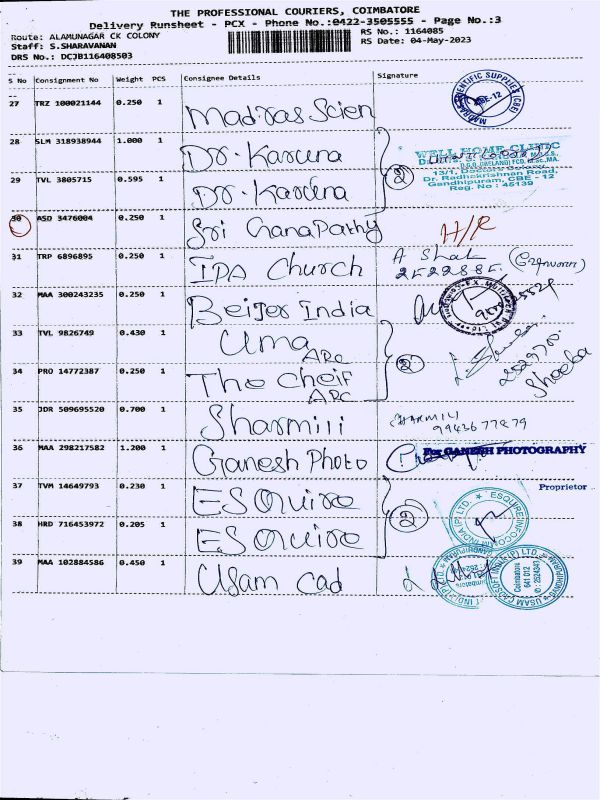 THE PROFESSIONAL COURIERS, COIMBATORE
Delivery Runsheet - PCX - Phone No.:0422-3505555 - Page No.:3
Route: ALAMUNAGAR CK COLONY
Staff: S.SHARAVANAN
DRS No.: DCJB116408503
RS No.: 1164085
RS Date: 04-May-2023
S No Consignment No Weight PCS Consignee Details Signature
27 TRZ 100021144 0.250 1 Madras Scien
28 SLM 318938944 1.000 1 Dr. Karuna
29 TVL 3805715 0.595 1 Dr. Karuna
2
WELL HOME CLINIC
13/1, Doctors Colony
Dr. Radhakrishnan Road,
Gandhipuram, CBE - 12
Reg. No : 46139
30 ASD 3476004 0.250 1 Sri Ganapathy H/R
31 TRP 6896895 0.250 1 IPA Church
32 MAA 300243235 0.250 1 Beijer India
33 TVL 9826749 0.430 1 Uma ARC
34 PRO 14772387 0.250 1 The Cheif ARC
2
Shoeba
35 JDR 509695520 0.700 1 Sharmili SHARMILI
9943677879
36 MAA 298217582 1.200 1 Ganesh Photo For GANESH PHOTOGRAPHY
Proprietor
37 TVM 14649793 0.230 1 ESQuire
38 HRD 716453972 0.205 1 ESQuire
2
39 MAA 102884586 0.450 1 Usam Cad
Coimbatore
641 012